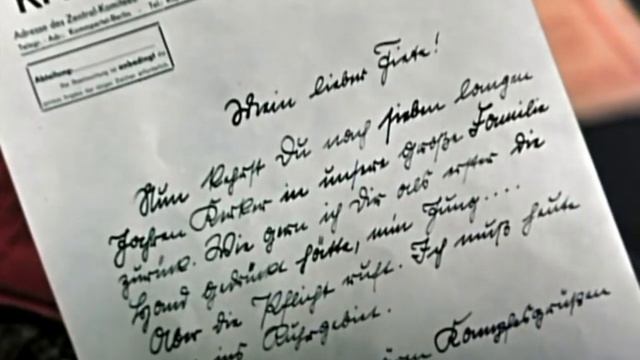 Adresse des Zentral-Komitees
Telegr.-Adr.: Kommpartei-Berlin
Abteilung:
Zur Beantwortung ist unbedingt die
Mein lieber Fiete!
Nun kehrst Du nach sieben langen
Jahren Kerker in unsere große Familie
zurück. Wie gern ich dir als erster die
Hand gedrückt hätte, min Jung....
Aber die Pflicht ruft. Ich muß heute
ins Ruhrgebiet.
Kampfesgrüßen